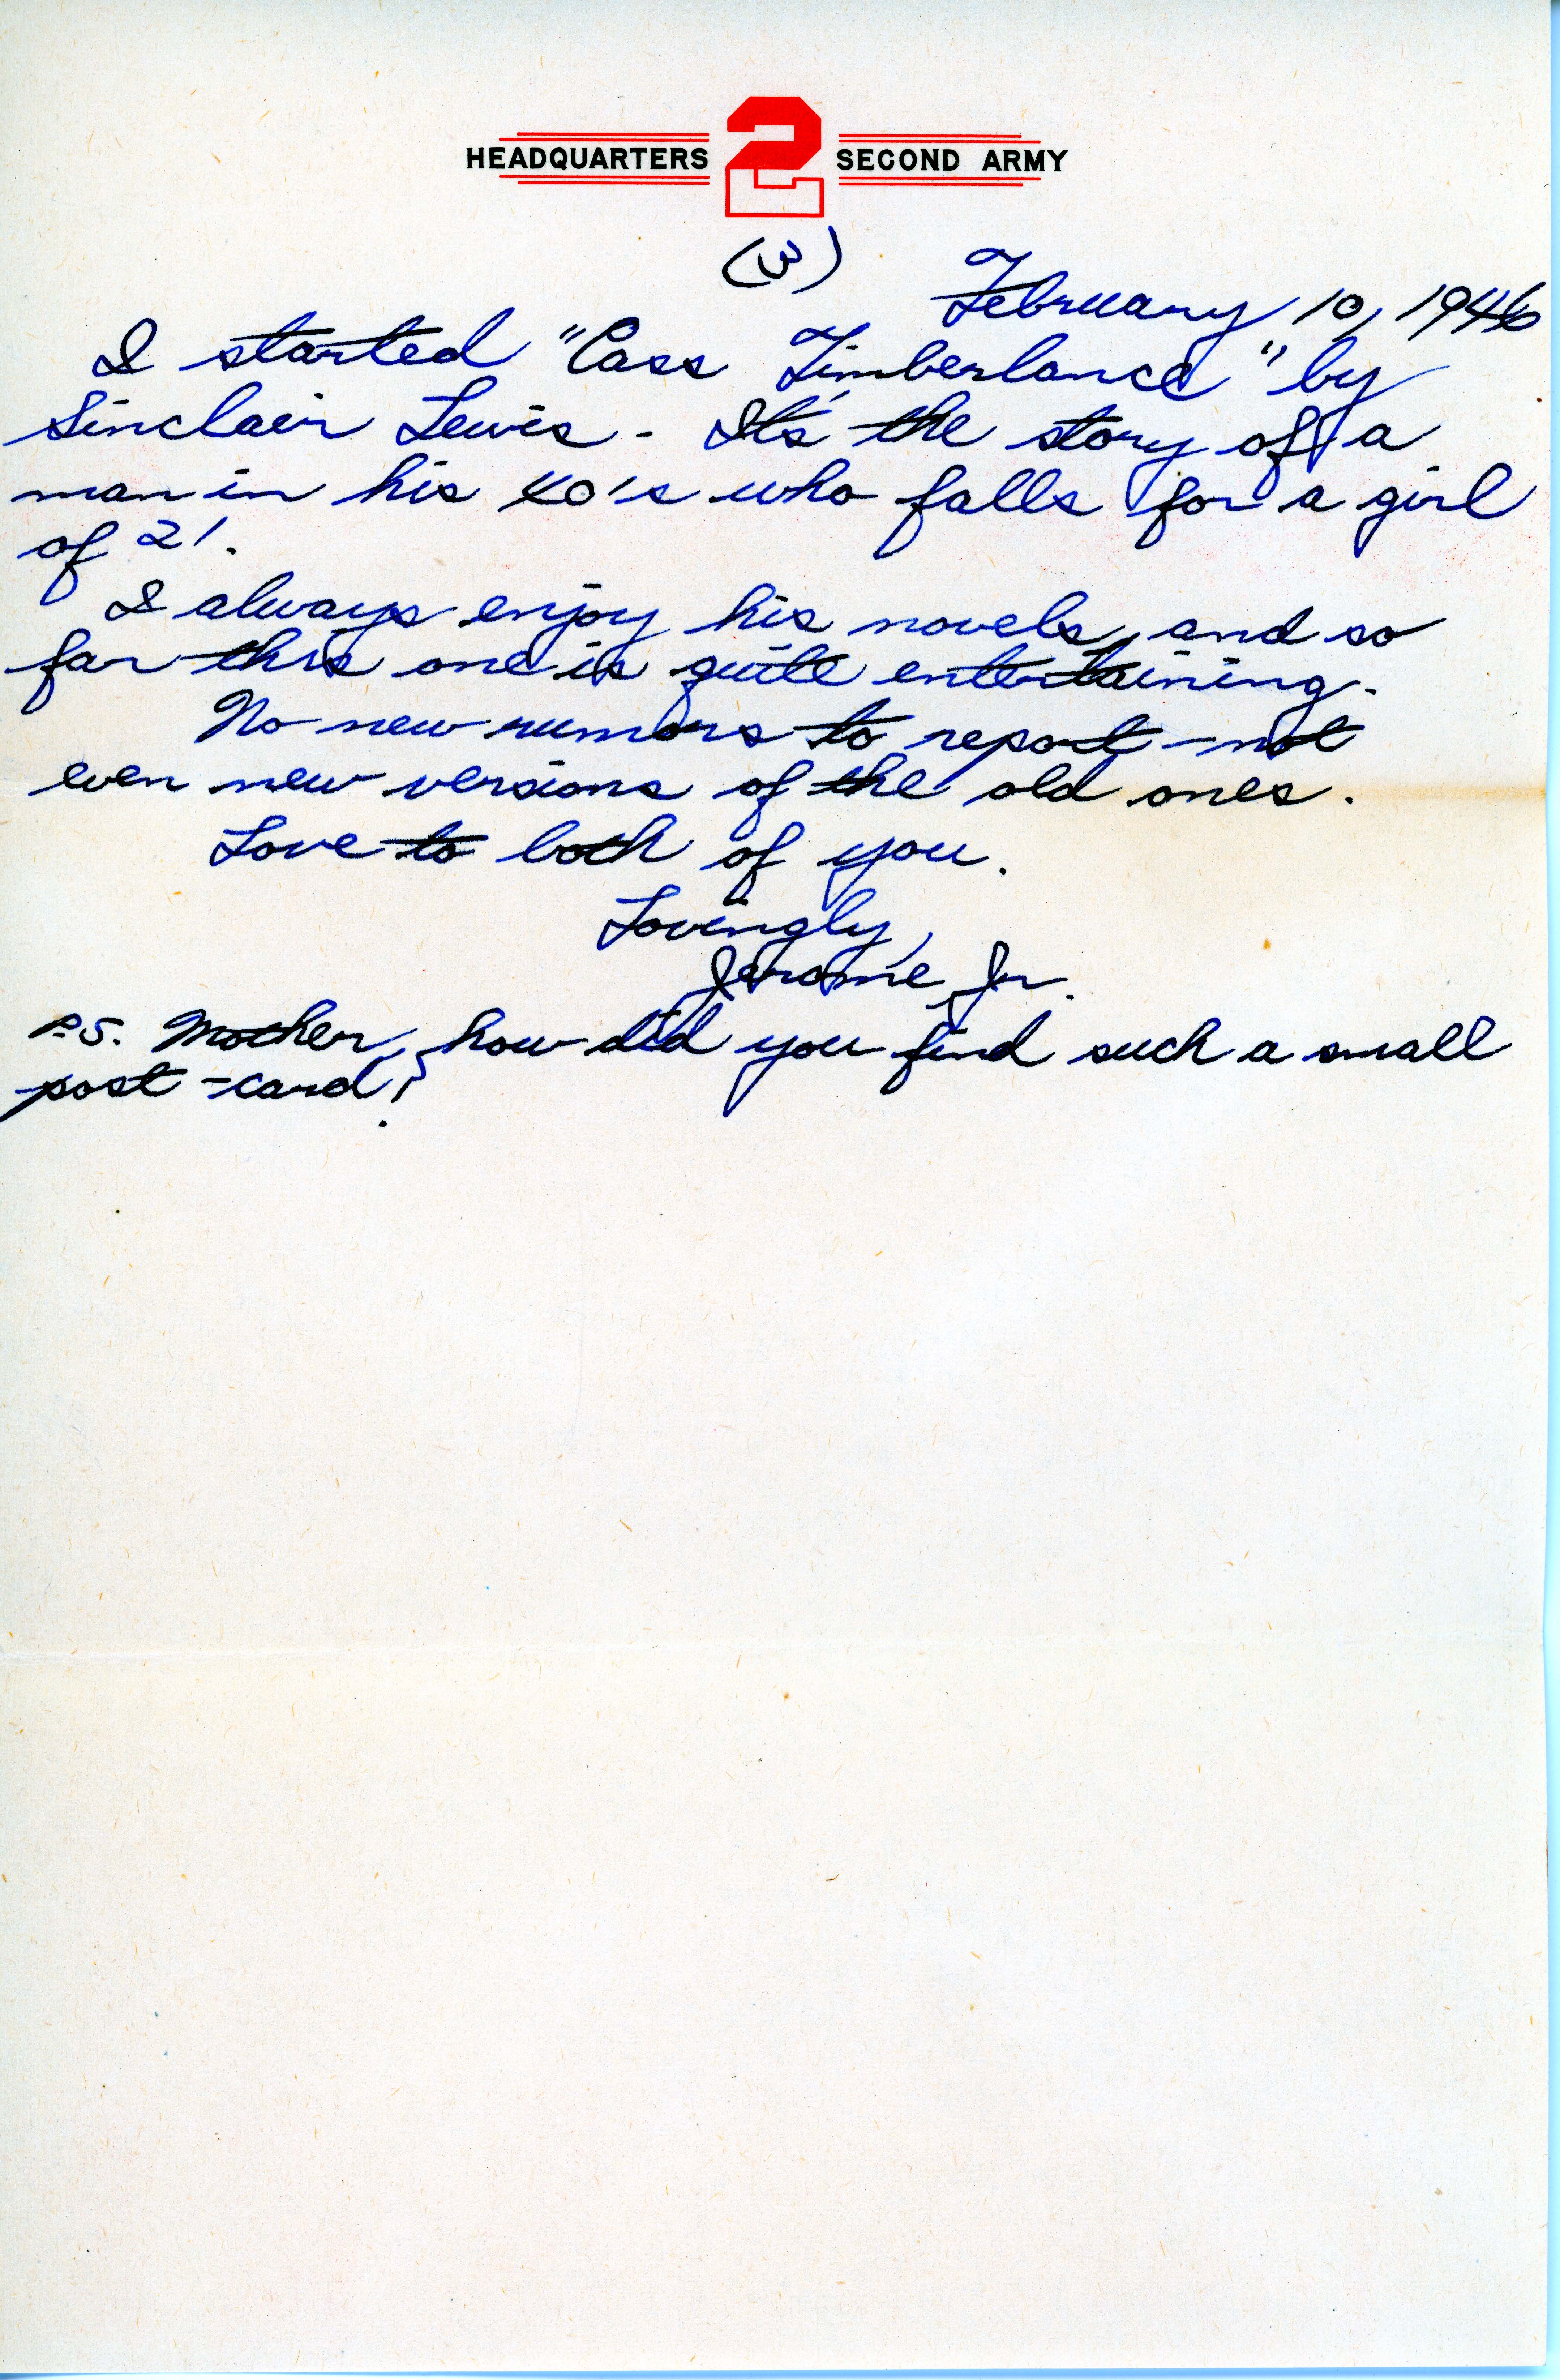 HEADQUARTERS 2 SECOND ARMY
(3)
February 10, 1946
I started "Cass Timberlance" by
Sinclair Lewis - It's the story of a
man in his 40's who falls for a girl
of 21.
I always enjoy his novels, and so
far this one is quite entertaining.
No new rumors to report - not
even new versions of the old ones.
Love to both of you.
Lovingly,
Jerome, Jr.
P.S. Mother, how did you find such a small
post-card?